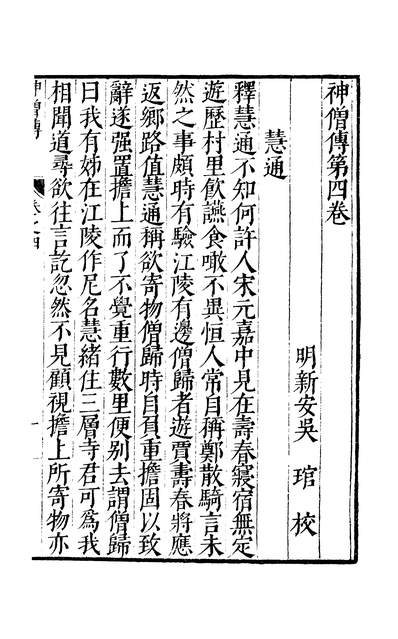 神僧傳第四卷
明新安吳琯校
慧通
釋慧通不知何許人宋元嘉中見在壽春寢宿無定
遊歷村里飲讌食噉不異恒人常自稱鄭散騎言未
然之事頗時有驗江陵有邊僧歸者遊賈壽春將應
返鄉路值慧通稱欲寄物僧歸時自負重擔固以致
辭遂强置擔上而了不覺重行數里便別去謂僧歸
曰我有姊在江陵作尼名慧緒住三層寺君可為我
相聞道尋欲往言訖忽然不見顧視擔上所寄物亦
神僧傳 卷之四 一